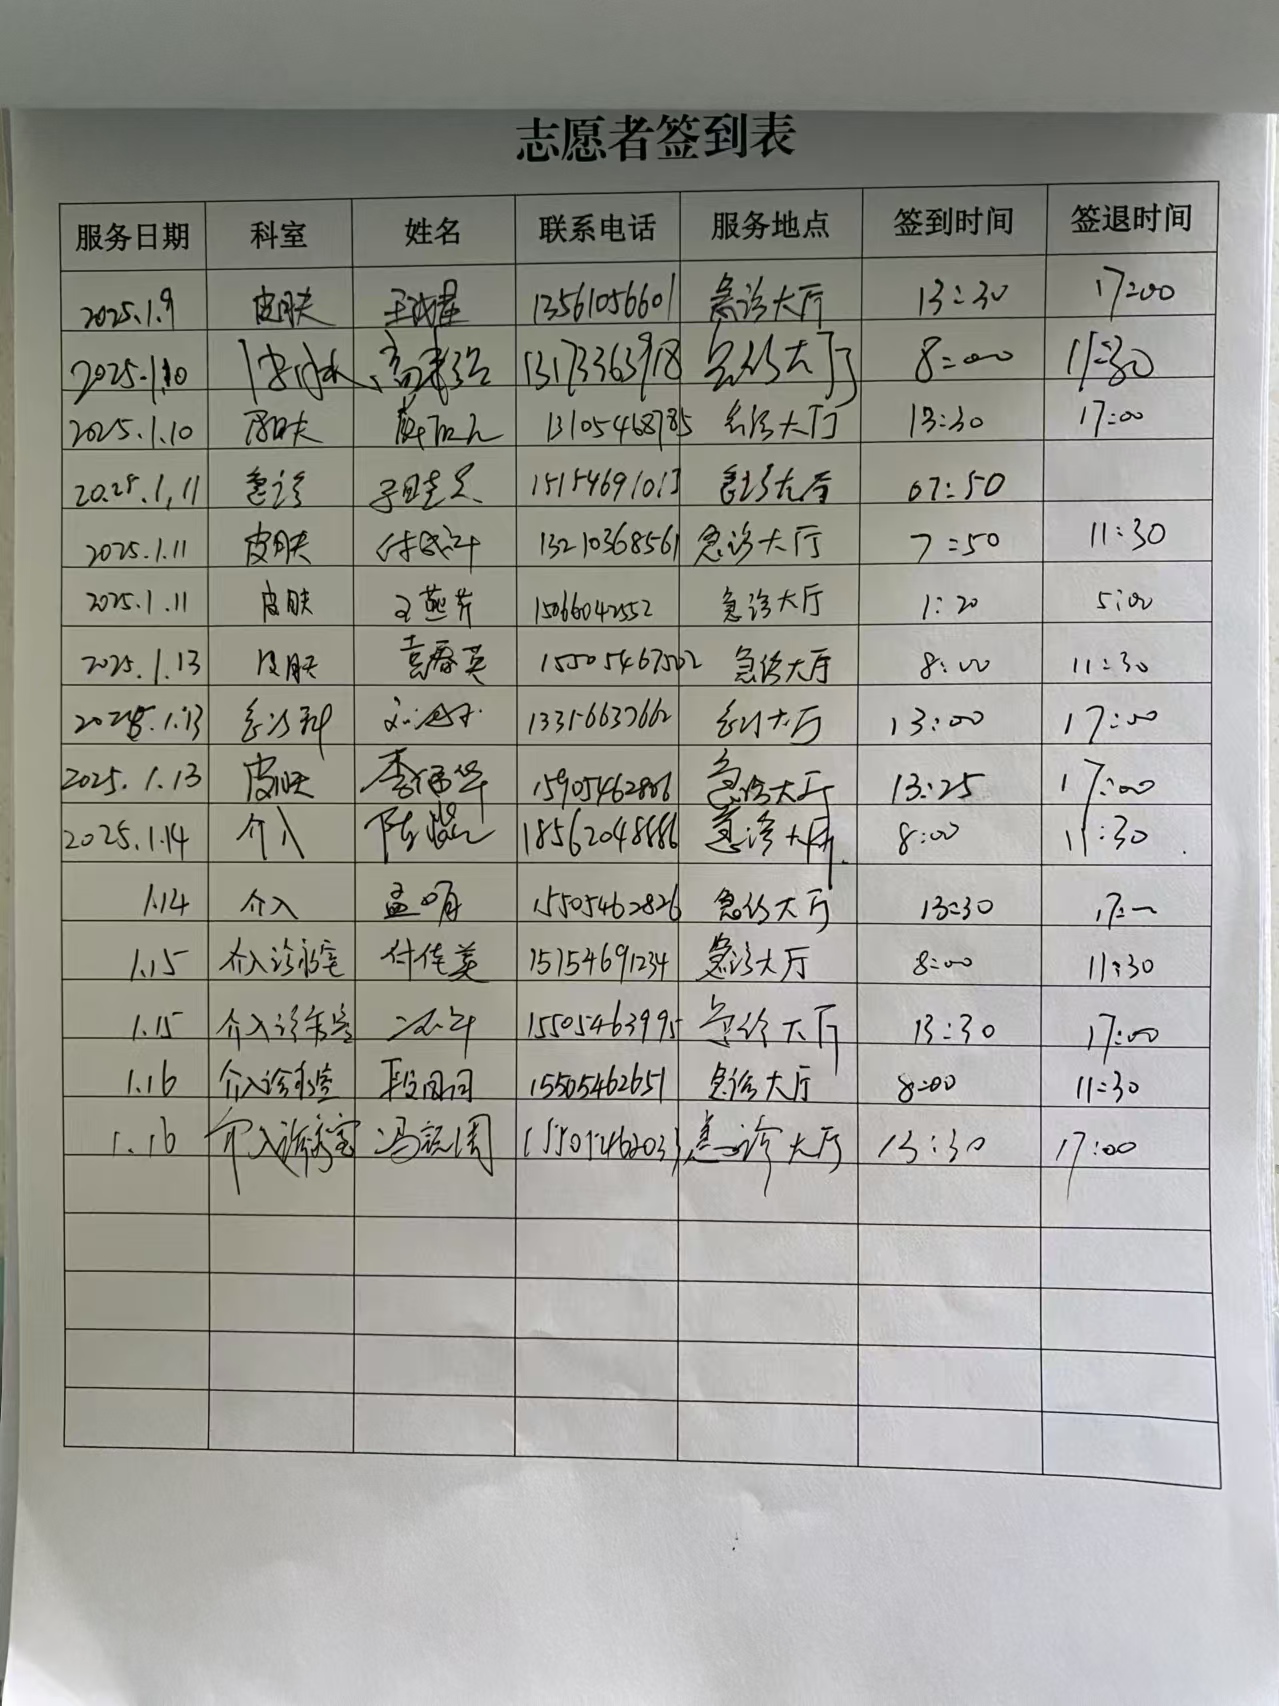 志愿者签到表
服务日期 科室 姓名 联系电话 服务地点 签到时间 签退时间
2025.1.9 皮肤 13561056601 急诊大厅 13:30 17:00
2025.1.10 13173363918 急诊大厅 8:00 11:30
2025.1.10 皮肤 13105468785 急诊大厅 13:30 17:00
2025.1.11 急诊 15154691013 急诊大厅 07:50
2025.1.11 皮肤 13210368561 急诊大厅 7:50 11:30
2025.1.11 皮肤 王燕芹 15066042552 急诊大厅 1:20 5:00
2025.1.13 皮肤 袁春英 15505467502 急诊大厅 8:00 11:30
2025.1.13 急诊科 急诊大厅 13:00 17:00
2025.1.13 皮肤 急诊大厅 13:25 17:00
2025.1.14 介入 急诊大厅 8:00 11:30
1.14 介入 孟 15505462826 急诊大厅 13:30
1.15 介入诊疗室 付佳美 15154691234 急诊大厅 8:00 11:30
1.15 介入诊疗室 15505463995 急诊大厅 13:30 17:00
1.16 介入诊疗室 15505462651 急诊大厅 8:00 11:30
1.16 介入诊疗室 冯 急诊大厅 13:30 17:00